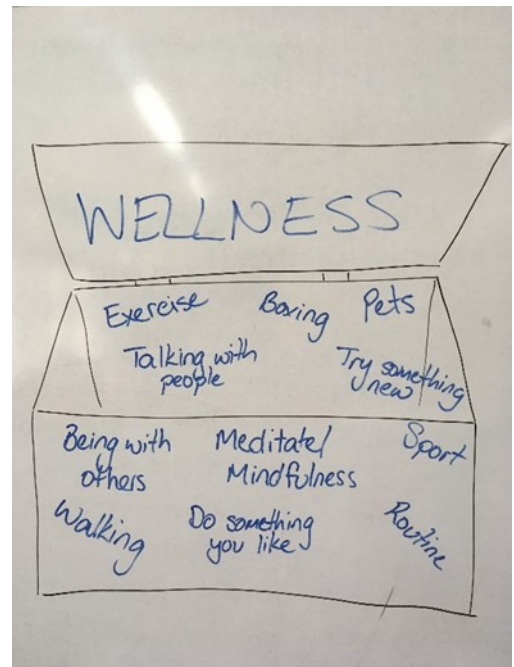 WELLNESS
Exercise Boxing Pets
Talking with
people
Try something
new
Being with
others
Meditate/
Mindfulness
Sport
Walking
Do something
you like
Routine